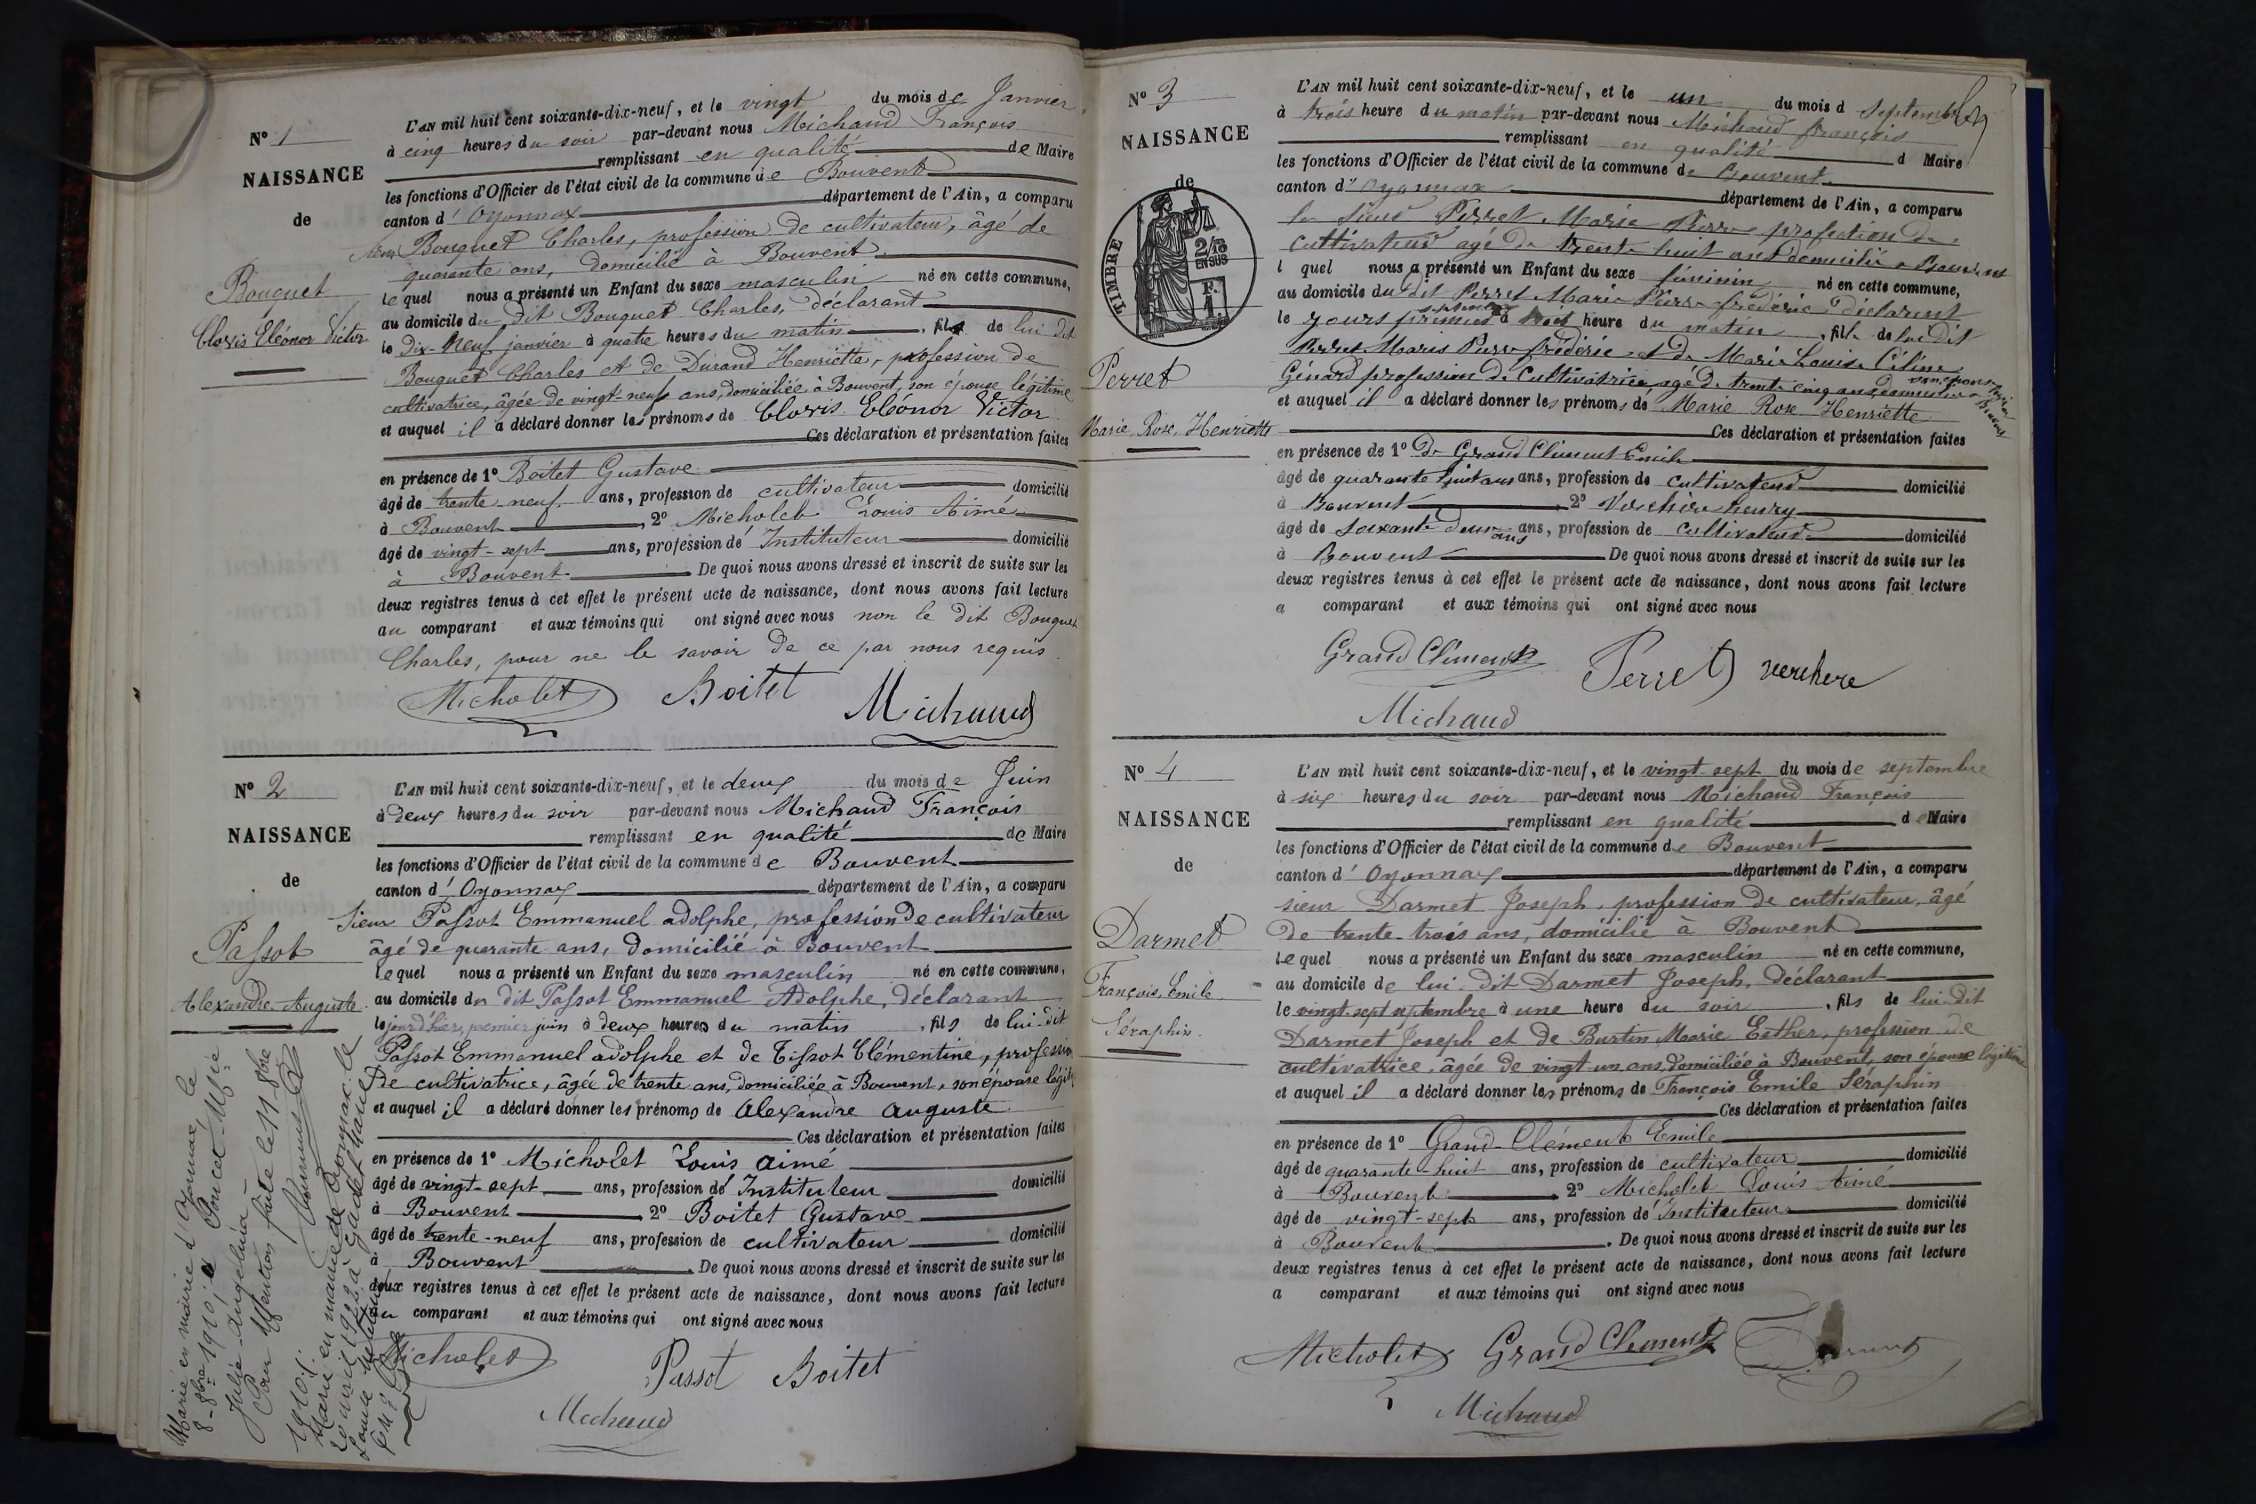 N° 1
NAISSANCE
de
Bouquet
Clovis Eléonor Victor
L'AN mil huit cent soixante-dix-neuf, et le vingt du mois de Janvier
à cinq heures du soir par-devant nous Michaud François
remplissant en qualité de Maire
les fonctions d'Officier de l'état civil de la commune de Bouvent
canton d'Oyonnax département de l'Ain, a comparu
sieur Bouquet Charles, profession de cultivateur, âgé de
quarante ans, domicilié à Bouvent
lequel nous a présenté un Enfant du sexe masculin né en cette commune,
au domicile du dit Bouquet Charles, déclarant
le Dix-Neuf janvier à quatre heures du matin, fils de lui dit
Bouquet Charles et de Durand Henriette, profession de
cultivatrice, âgée de vingt-neuf ans, domiciliée à Bouvent, son épouse légitime
et auquel il a déclaré donner les prénoms de Clovis Eléonor Victor
Ces déclaration et présentation faites
en présence de 1° Boitet Gustave
âgé de trente-neuf ans, profession de cultivateur domicilié
à Bouvent, 2° Micholet Louis Aimé
âgé de vingt-sept ans, profession de Instituteur domicilié
à Bouvent. De quoi nous avons dressé et inscrit de suite sur les
deux registres tenus à cet effet le présent acte de naissance, dont nous avons fait lecture
au comparant et aux témoins qui ont signé avec nous non le dit Bouquet
Charles, pour ne le savoir de ce par nous requis.
Micholet Boitet Michaud
N° 2
NAISSANCE
de
Passot
Alexandre Auguste
L'AN mil huit cent soixante-dix-neuf, et le deux du mois de Juin
à deux heures du soir par-devant nous Michaud François
remplissant en qualité de Maire
les fonctions d'Officier de l'état civil de la commune de Bouvent
canton d'Oyonnax département de l'Ain, a comparu
sieur Passot Emmanuel adolphe, profession de cultivateur
âgé de quarante ans, domicilié à Bouvent
lequel nous a présenté un Enfant du sexe masculin né en cette commune,
au domicile du dit Passot Emmanuel Adolphe, déclarant
le jour d'hier, premier juin à deux heures du matin, fils de lui dit
Passot Emmanuel adolphe et de Tissot Clémentine, profession
de cultivatrice, âgée de trente ans, domiciliée à Bouvent, son épouse légit.
et auquel il a déclaré donner les prénoms de Alexandre Auguste
Ces déclaration et présentation faites
en présence de 1° Micholet Louis Aimé
âgé de vingt-sept ans, profession de Instituteur domicilié
à Bouvent 2° Boitet Gustave
âgé de trente-neuf ans, profession de cultivateur domicilié
à Bouvent. De quoi nous avons dressé et inscrit de suite sur les
deux registres tenus à cet effet le présent acte de naissance, dont nous avons fait lecture
au comparant et aux témoins qui ont signé avec nous
Micholet Passot Boitet
Michaud
Marié en mairie d'Oyonnax, le
8 - 8bre 1910, à Poncet Mie
Julie-Angelina
Pour Mention faite le 11 8bre
1910 /.
Marié en mairie de Oyonnax le
20 avril 1922 à
Louise
N° 3
NAISSANCE
de
TIMBRE
2/10
EN SUS
F. 1
Perret
Marie Rose Henriette
L'AN mil huit cent soixante-dix-neuf, et le un du mois d Septembre
à trois heure du matin par-devant nous Michaud françois
remplissant en qualité d Maire
les fonctions d'Officier de l'état civil de la commune de Bouvent
canton d'Oyonnax département de l'Ain, a comparu
le sieur Perret Marie Pierre profection de
cultivateur agé de trente huit ans domicilié a Bouvent
l quel nous a présenté un Enfant du sexe féminin né en cette commune,
au domicile du dit Perret Marie Pierre frédéric déclarent
le yours premier septembre à trois heure du matin, fille de lui dit
Perret Marie Pierre frédéric et de Marie Louise Céline
Génard profession de Cultivatrice agé de trente cinq ans domicilié a Bouvent
et auquel il a déclaré donner les prénoms de Marie Rose Henriette
Ces déclaration et présentation faites
en présence de 1° De Grand Clément Emile
âgé de quarante huit ans ans, profession de cultivateur domicilié
à Bouvent 2° Verchère henry
âgé de soixante deux ans ans, profession de cultivateur domicilié
à Bouvent De quoi nous avons dressé et inscrit de suite sur les
deux registres tenus à cet effet le présent acte de naissance, dont nous avons fait lecture
a comparant et aux témoins qui ont signé avec nous
Grand Clément Perret verchere
Michaud
N° 4
NAISSANCE
de
Darmet
François, Emile
Séraphin
L'AN mil huit cent soixante-dix-neuf, et le vingt-sept du mois de septembre
à six heures du soir par-devant nous Michaud François
remplissant en qualité de Maire
les fonctions d'Officier de l'état civil de la commune de Bouvent
canton d'Oyonnax département de l'Ain, a comparu
sieur Darmet Joseph, profession de cultivateur, âgé
de trente-trois ans, domicilié à Bouvent
lequel nous a présenté un Enfant du sexe masculin né en cette commune,
au domicile de lui dit Darmet Joseph, déclarant
le vingt-sept septembre à une heure du soir, fils de lui dit
Darmet Joseph et de Burtin Marie Esther, profession de
cultivatrice, âgée de vingt-un ans, domiciliée à Bouvent, son épouse légitime
et auquel il a déclaré donner les prénoms de François Emile Séraphin
Ces déclaration et présentation faites
en présence de 1° Grand-Clément Emile
âgé de quarante-huit ans, profession de cultivateur domicilié
à Bouvent, 2° Micholet Louis Aimé
âgé de vingt-sept ans, profession de Instituteur domicilié
à Bouvent. De quoi nous avons dressé et inscrit de suite sur les
deux registres tenus à cet effet le présent acte de naissance, dont nous avons fait lecture
a comparant et aux témoins qui ont signé avec nous
Micholet Grand Clément Darmet
Michaud